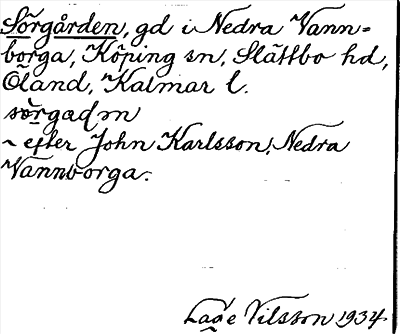 Sörgården, gd i Nedra Vann=
borga, Köping sn, Slättbo hd,
Öland, Kalmar l.
sörgadm
~ efter John Karlsson, Nedra
Vannborga.
Lage Nilsson 1934.